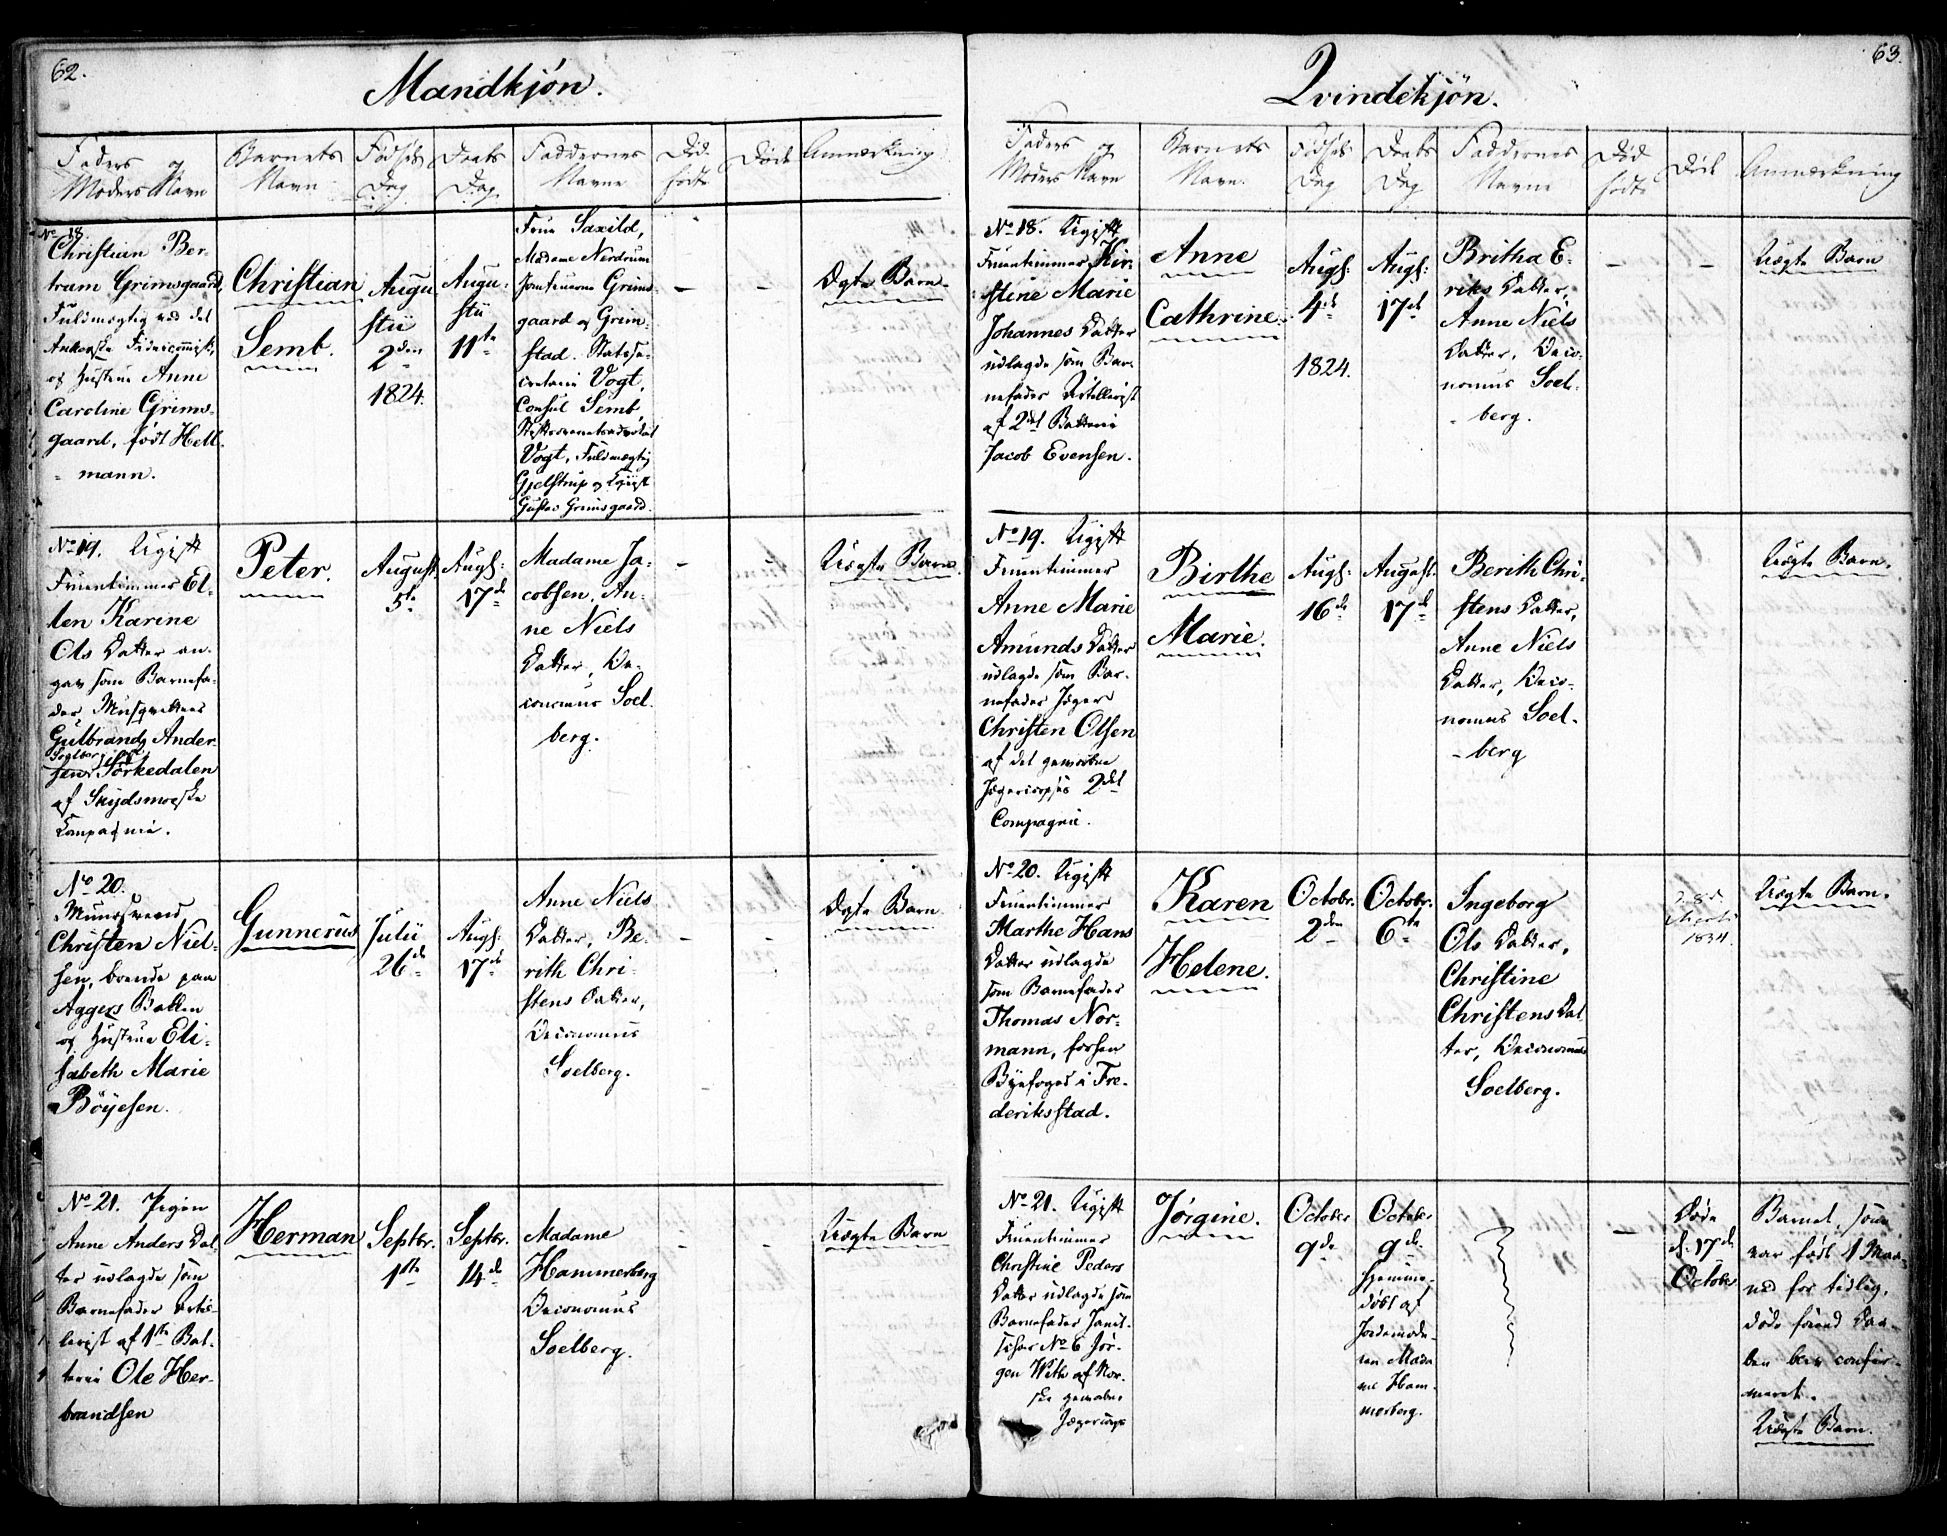 62.
Mandkjón.
Faders og
Moders Navn
Barnets
Navn
Fødsels
Dag
Daabs
Dag.
Faddernes
Navne
Død
fødte
Døde
Anmærkning
No 18.
Christian Ber-
tram Grimsgaard,
Fuldmægtig ved det
Ankerske Fideicommis,
og Hustrue Anne
Caroline Grims-
gaard, født Hell-
mann.
Christian
Semb.
Augu
stii
2den
1824.
Augu-
stii
11te
Frue Saxild,
Madame Nordrum
Jomfruerne Grims-
gaard og Grim-
stad. Statsse-
cretair Vogt,
Consul Semb,
Vogt, Fuldmægtig
Gjelstrup og
Gustav Grimsgaard.
-
-
Ægte Barn
No 19. Ugift
Fruentimmer El-
len Karine
Ols Datter an-
gav som Barnefa-
der Musqvetteer
Gulbrand Ander-
sen Sörkedalen
af Snydsmoeske
Compagnie.
Peter.
August
5te
Augs:
17de
Madame Ja-
cobsen, An-
ne Niels
Datter, Oe-
conomus Soel-
berg.
-
Uægte Barn.
No 20.
Muursvend
Christen Niel-
sen, boende paa
Aggers Bakken
og Hustrue Eli-
sabeth Marie
Böyesen.
Gunnerus
Julii
26de
Augs.
17de
Anne Niels
Datter, Be-
rith Chri-
stens Datter,
Oeconomus
Soelberg.
-
-
Ægte Barn
No 21. Pigen
Anne Anders Dat-
ter udlagde som
Barnefader Artil-
lerist af 1ste Bat-
terie Ole Her-
brandsen
Herman
Septbr.
1ste
Septbr.
14de
Madame
Hammerberg
Oeconomus
Soelberg.
-
-
Uægte Barn
63.
Qvindekjön.
Faders og
Moders Navn
Barnets
Navn.
Fødsels
Dag
Daabs
Dag
Faddernes
Navne
Død
fødte
Døde
Anmærkning
No 18. Ugift
Fruentimmer Kir-
stene Marie
Johannes Datter
udlagde som Bar-
nefader Artillerist
af 2det Batterie
Jacob Evensen.
Anne
Cathrine.
Augs:
4de
1824.
Augs:
17de
Britha E-
riks Datter,
Anne Niels
Datter, Oeco-
nomus Soel-
berg.
-
-
Uægte Barn
No 19. Ugift
Fruentimmer
Anne Marie
Amunds Datter
udlagde som Bar-
nefader Jæger
Christen Olsen
af det gevorbne
Jægercorpses 2det
Compagnie.
Birthe
Marie.
Augs:
16de
August.
17de
Berith Chri-
stens Datter,
Anne Niels
Datter, Oeco-
nomus Soel-
berg
Uægte Barn.
No 20. Ugift
Fruentimmer
Marthe Hans
Datter udlagde
som Barnefader
Thomas Nor-
mann, forhen
Byefoged i Fre-
deriksstad.
Karen
Helene.
Octobr.
2den
Octobr.
6te
Ingeborg
Ols Datter,
Christine
Christens Dat-
ter, Oeconomus
Soelberg.
28de
1834.
Uægte Barn.
No 21. Ugift
Fruentimmer
Christine Peders
Datter udlagde som
Barnefader Janit-
schar No 6 Jör-
gen With af Nor-
ske gevorbne
Jægercorps
Jörgine.
October
9de
October
9de
hjemme-
döbt af
Jordemode-
ren Mada-
me Ham-
merberg.
-
Døde
d. 17de
October
Barnet, som
var født 1 Maa-
ned for tidlig,
døde førend Daa-
ben blev confir-
meret.
Uægte Barn.